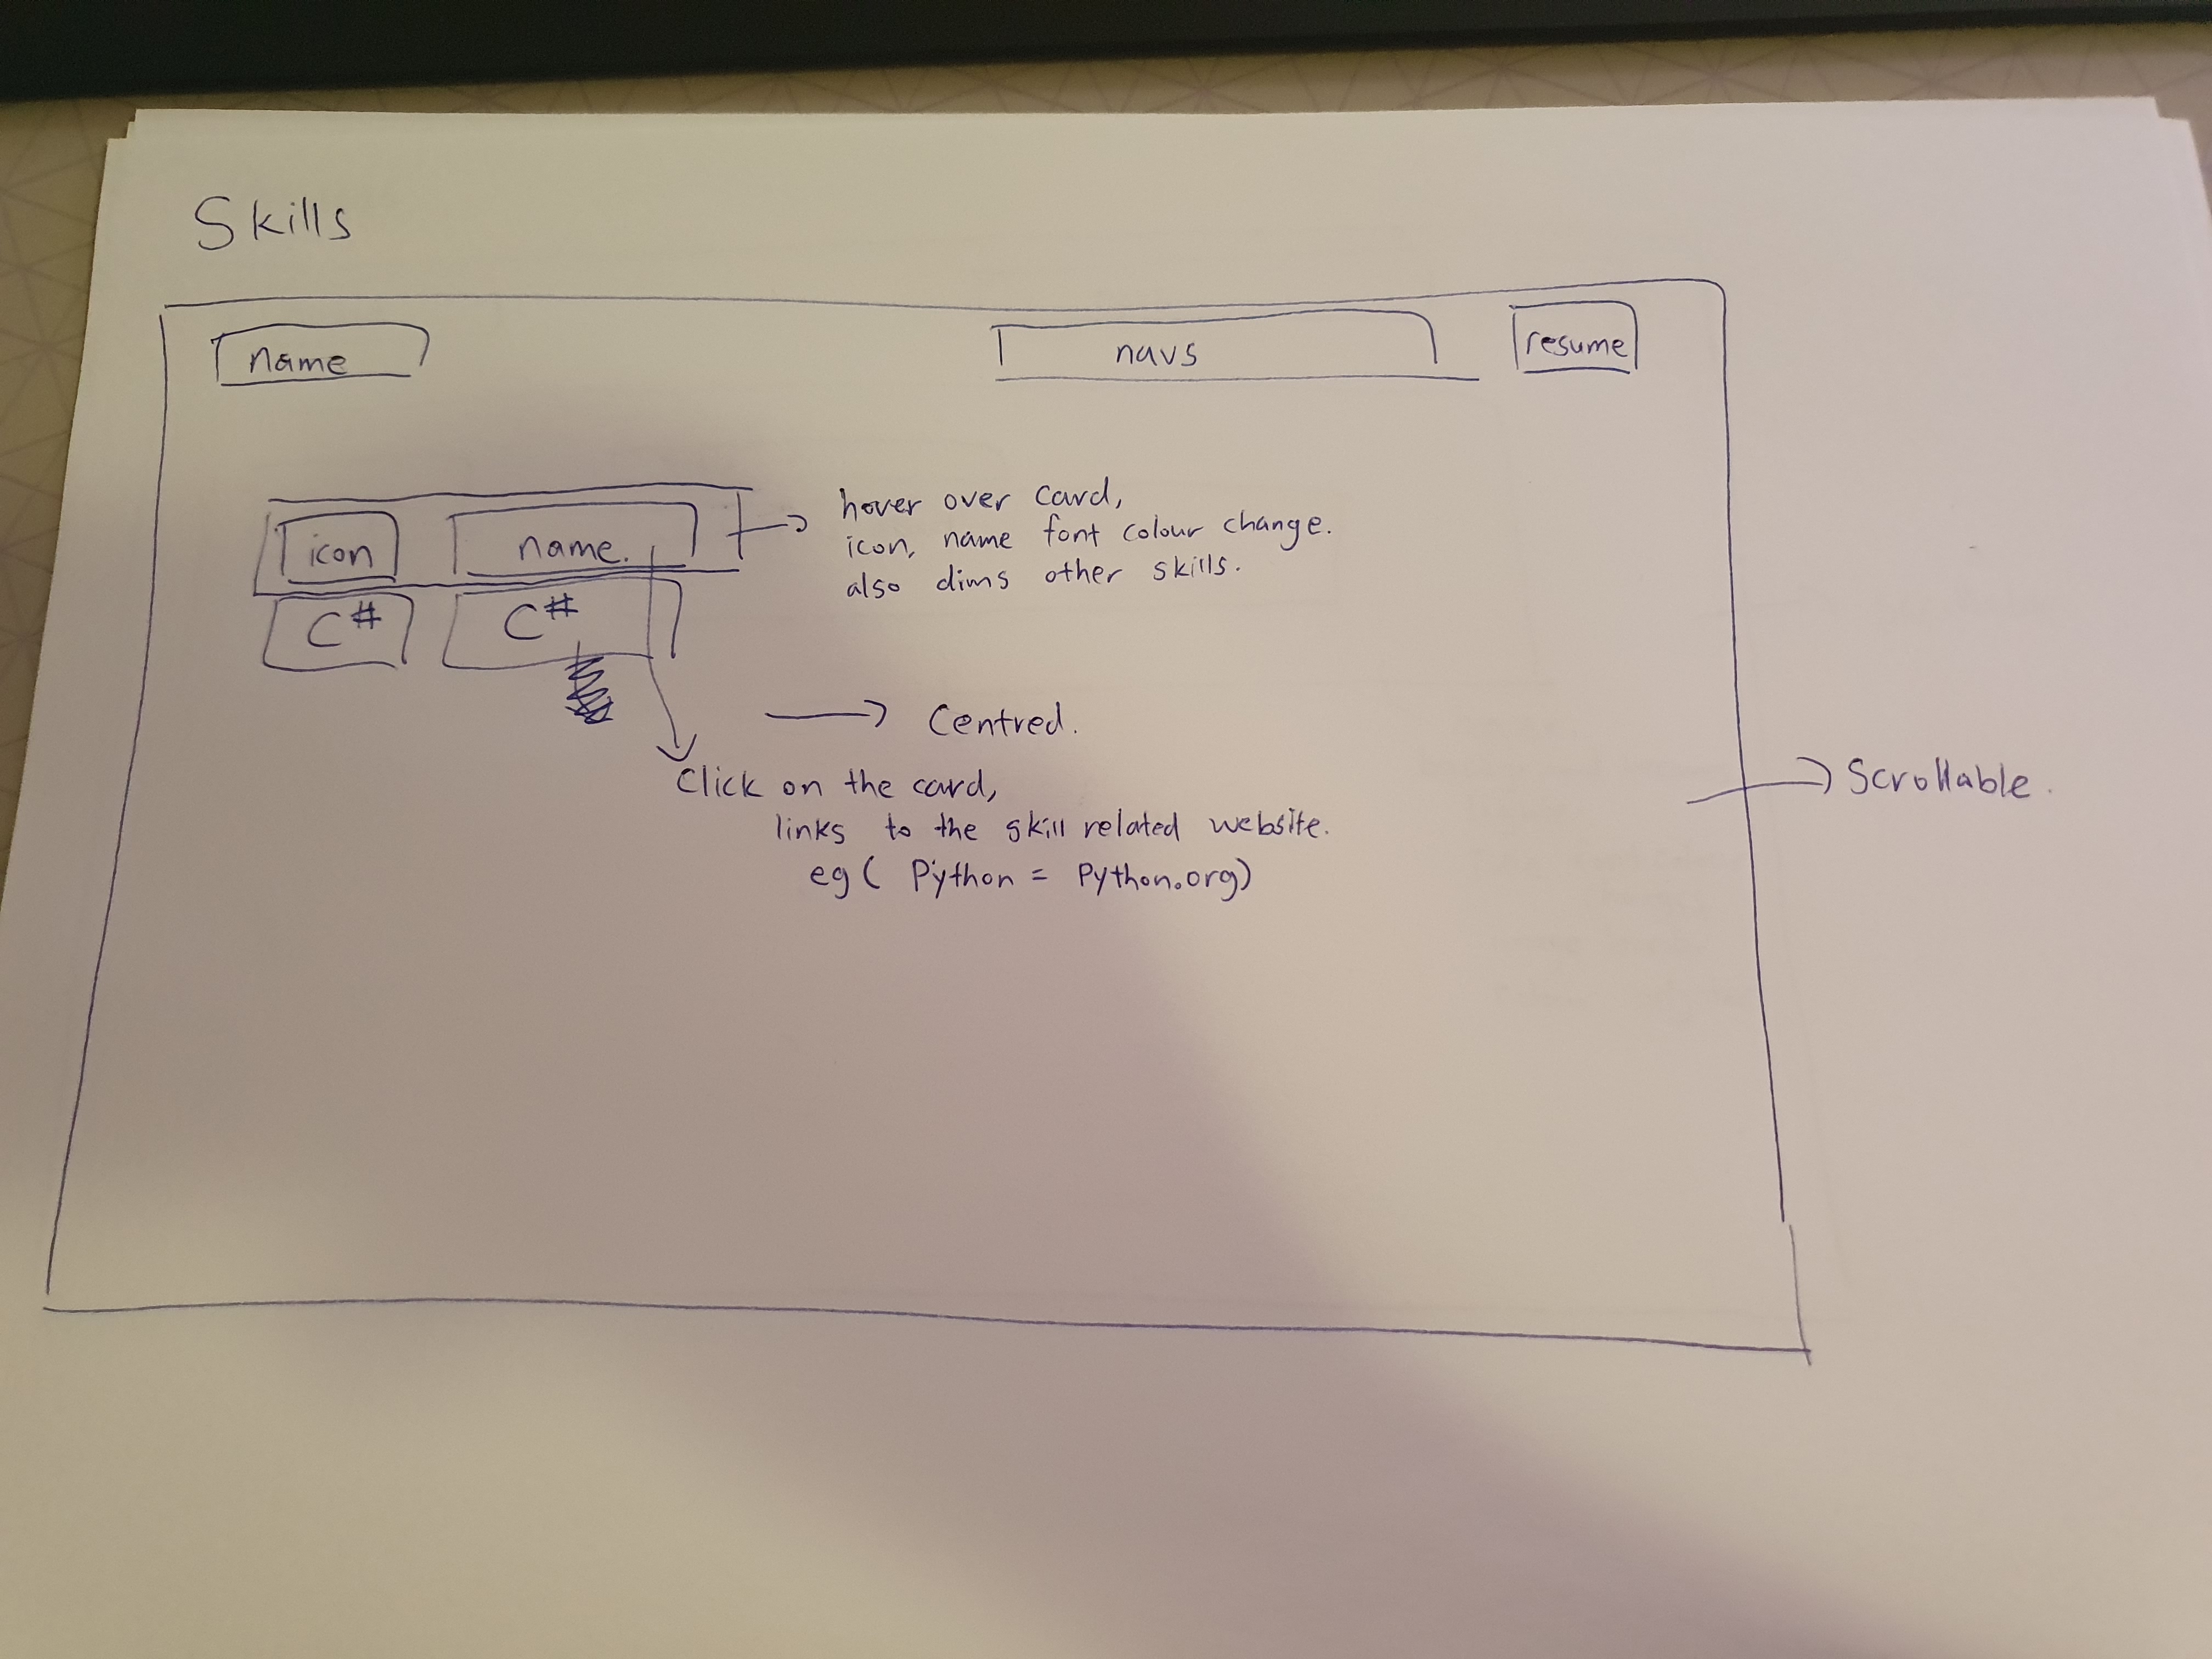 Skills
name
navs
resume
icon
name.
hover over card,
icon, name font colour change.
also dims other skills.
C#
C#
Centred.
Scrollable.
Click on the card,
links to the skill related website.
eg ( Python = Python.org)